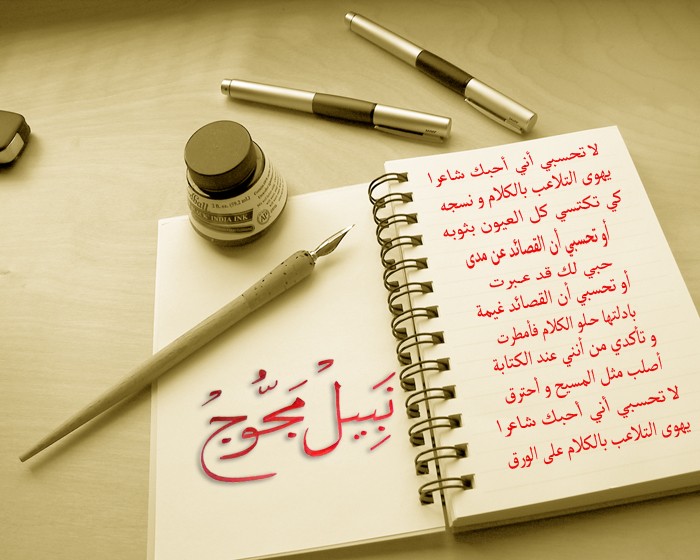 لا تحسبي أني أحبك شاعرا
يهوى التلاعب بالكلام و نسجه
كي تكتسي كل العيون بثوبه
أو تحسبي أن القصائد عن مدى
حبي لك قد عبرت
أو تحسبي أن القصائد غيمة
بادلتها حلو الكلام فأمطرت
و تأكدي من أنني عند الكتابة
أصلب مثل المسيح و أحترق
لا تحسبي أني أحبك شاعرا
يهوى التلاعب بالكلام على الورق
نَبِيلْ مَجُّوجْ
INDIA INK